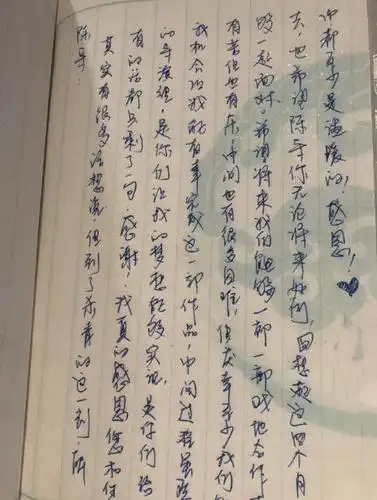 陈导：
其实有很多话想说，但到了杀青的这一刻，所
有的话都只剩了一句，感谢！我真的感恩您和你
的导演组，是你们让我的梦想能够实现，是你们给
我机会让我能有幸完成这一部作品，中间过程虽然
有苦但也有乐，中间也有很多困难，但庆幸至少我们
够一起面对。希望将来我们能够一部一部戏地合作
去，也希望陈导你无论将来如何，回想起这四个月
你都至少是温暖的！感恩！